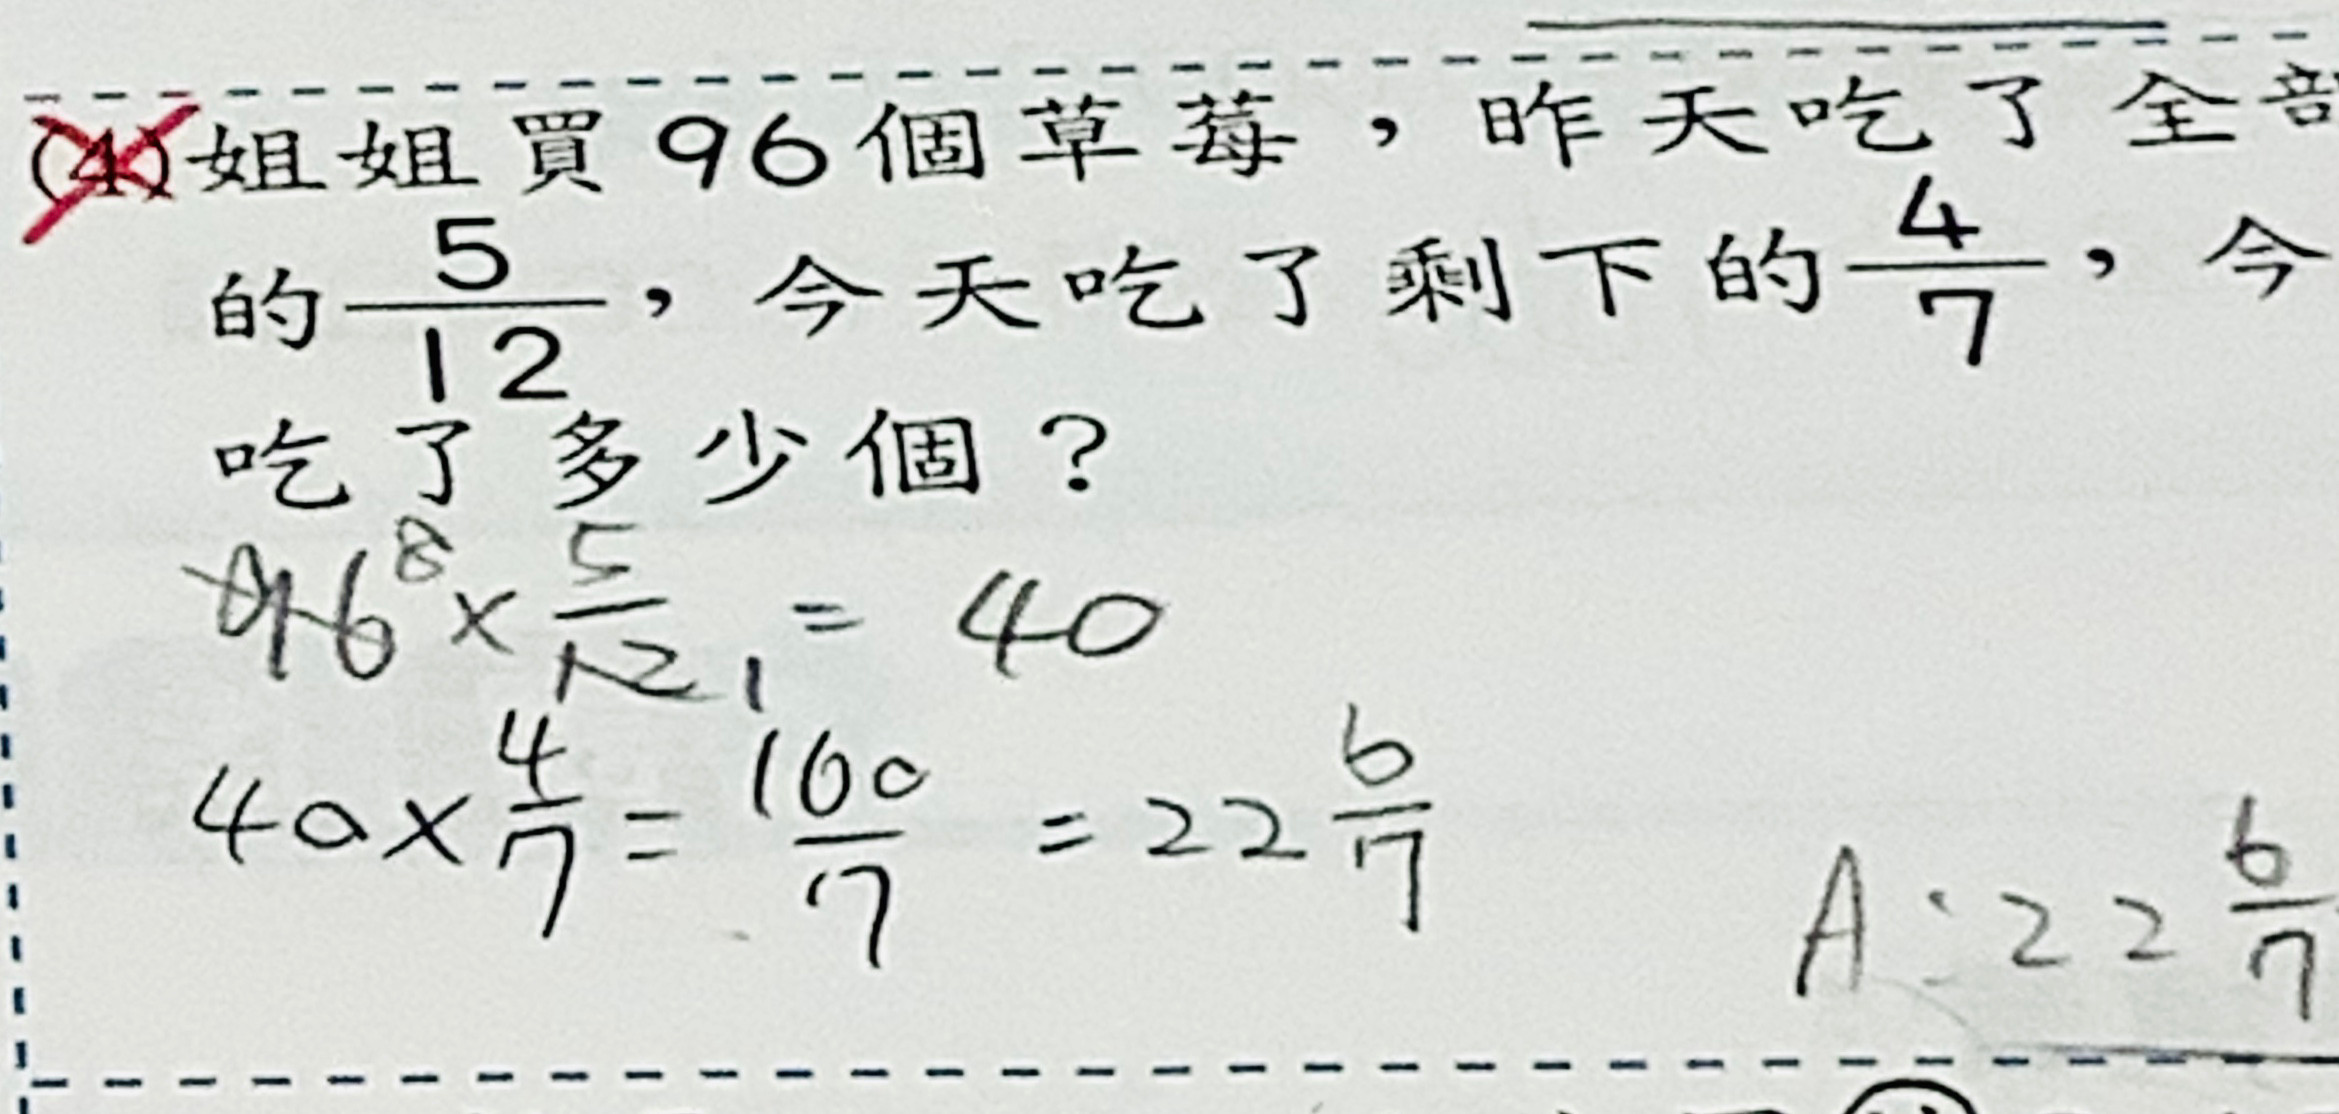 (4)姐姐買96個草莓，昨天吃了全部
的5/12，今天吃了剩下的4/7，今
吃了多少個？
96 8 × 5/12 1 = 40
40 × 4/7 = 160/7 = 22 6/7
A：22 6/7